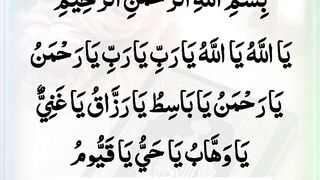 بِسْمِ اللّٰهِ الرَّحْمٰنِ الرَّحِيْمِ
يَا اللّٰهُ يَا اللّٰهُ يَا رَبِّ يَا رَبِّ يَا رَحْمَنُ
يَا رَحْمَنُ يَا بَاسِطُ يَا رَزَّاقُ يَا غَنِيُّ
يَا وَهَّابُ يَا حَيُّ يَا قَيُّومُ